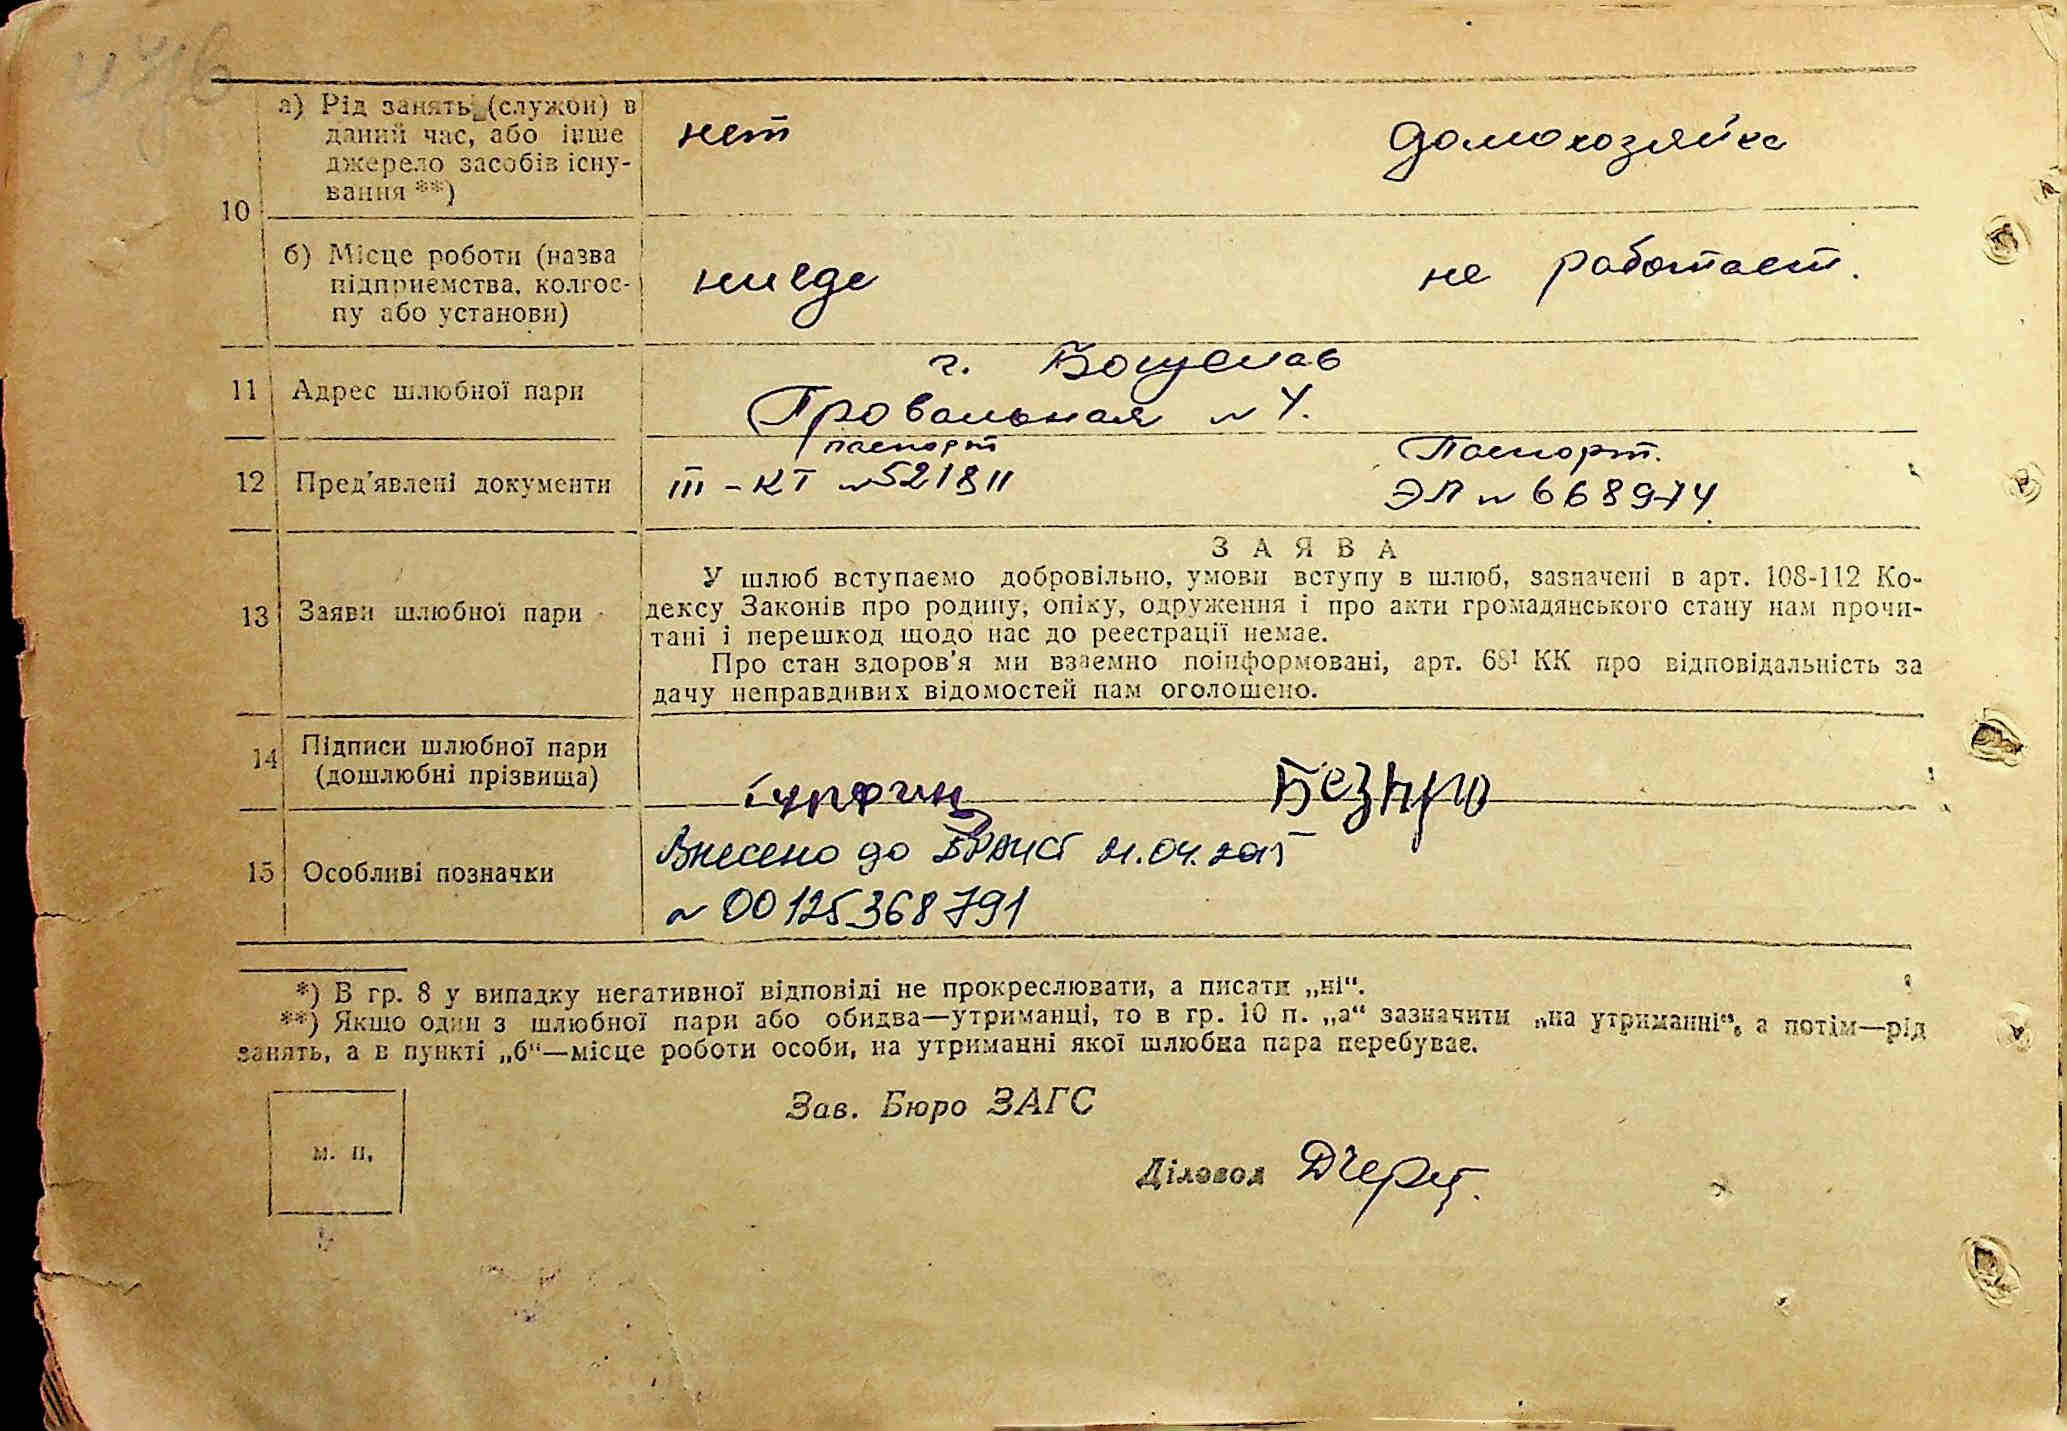 а) Рід занять (служби) в
даний час, або інше
джерело засобів існу-
вання **)
нет
домохозяйка
10
б) Місце роботи (назва
підприємства, колгос-
пу або установи)
нигде
не работает.
г. Богуслав
11 Адрес шлюбної пари
Провальная № 4.
паспорт
Паспорт.
12 Пред'явлені документи
III – КТ № 521811
ЭЛ № 668974
З А Я В А
У шлюб вступаємо добровільно, умови вступу в шлюб, зазначені в арт. 108-112 Ко-
13 Заяви шлюбної пари
дексу Законів про родину, опіку, одруження і про акти громадянського стану нам прочи-
тані і перешкод щодо нас до реєстрації немає.
Про стан здоров'я ми взаємно поінформовані, арт. 68¹ КК про відповідальність за
дачу неправдивих відомостей нам оголошено.
14 Підписи шлюбної пари
(дошлюбні прізвища)
Безпро
15 Особливі позначки
Внесено до ДРАЦСГ 21.04.2015
№ 00125368791
*) В гр. 8 у випадку негативної відповіді не прокреслювати, а писати „ні“.
**) Якщо один з шлюбної пари або обидва—утриманці, то в гр. 10 п. „а“ зазначити „на утриманні“, а потім—рід
занять, а в пункті „б“—місце роботи особи, на утриманні якої шлюбна пара перебуває.
Зав. Бюро ЗАГС
м. п.
Діловод